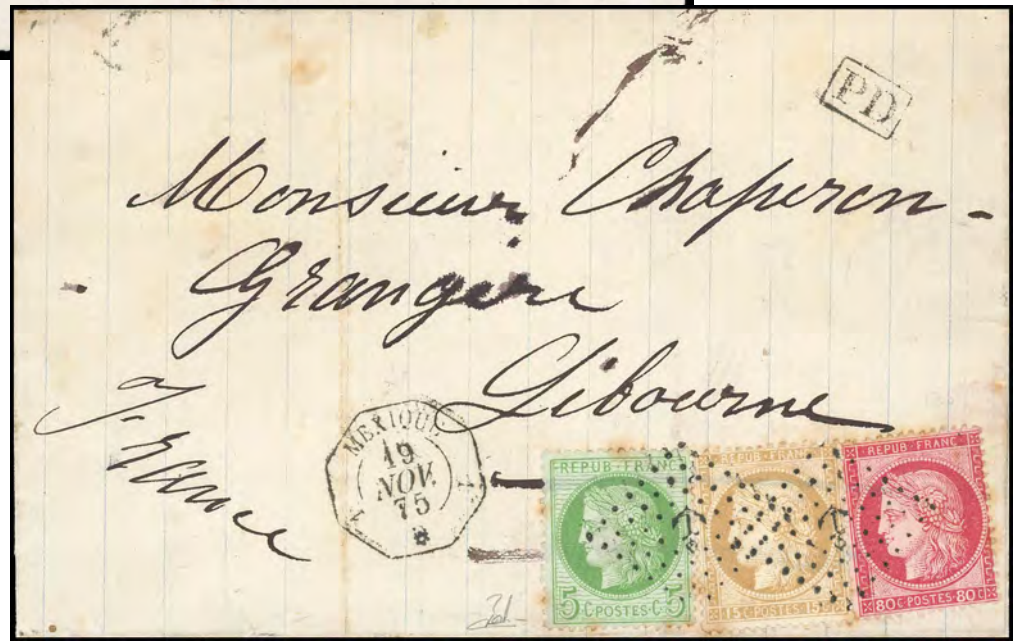 PD
Monsieur Chaperon-
Grangère
Libourne
France
MEXIQUE
19
NOV.
75
REPUB·FRANC
5 C·POSTES·C·5
REPUB·FRANC
15 C·POSTES·15 C
REPUB·FRANC
80C·POSTES·80C